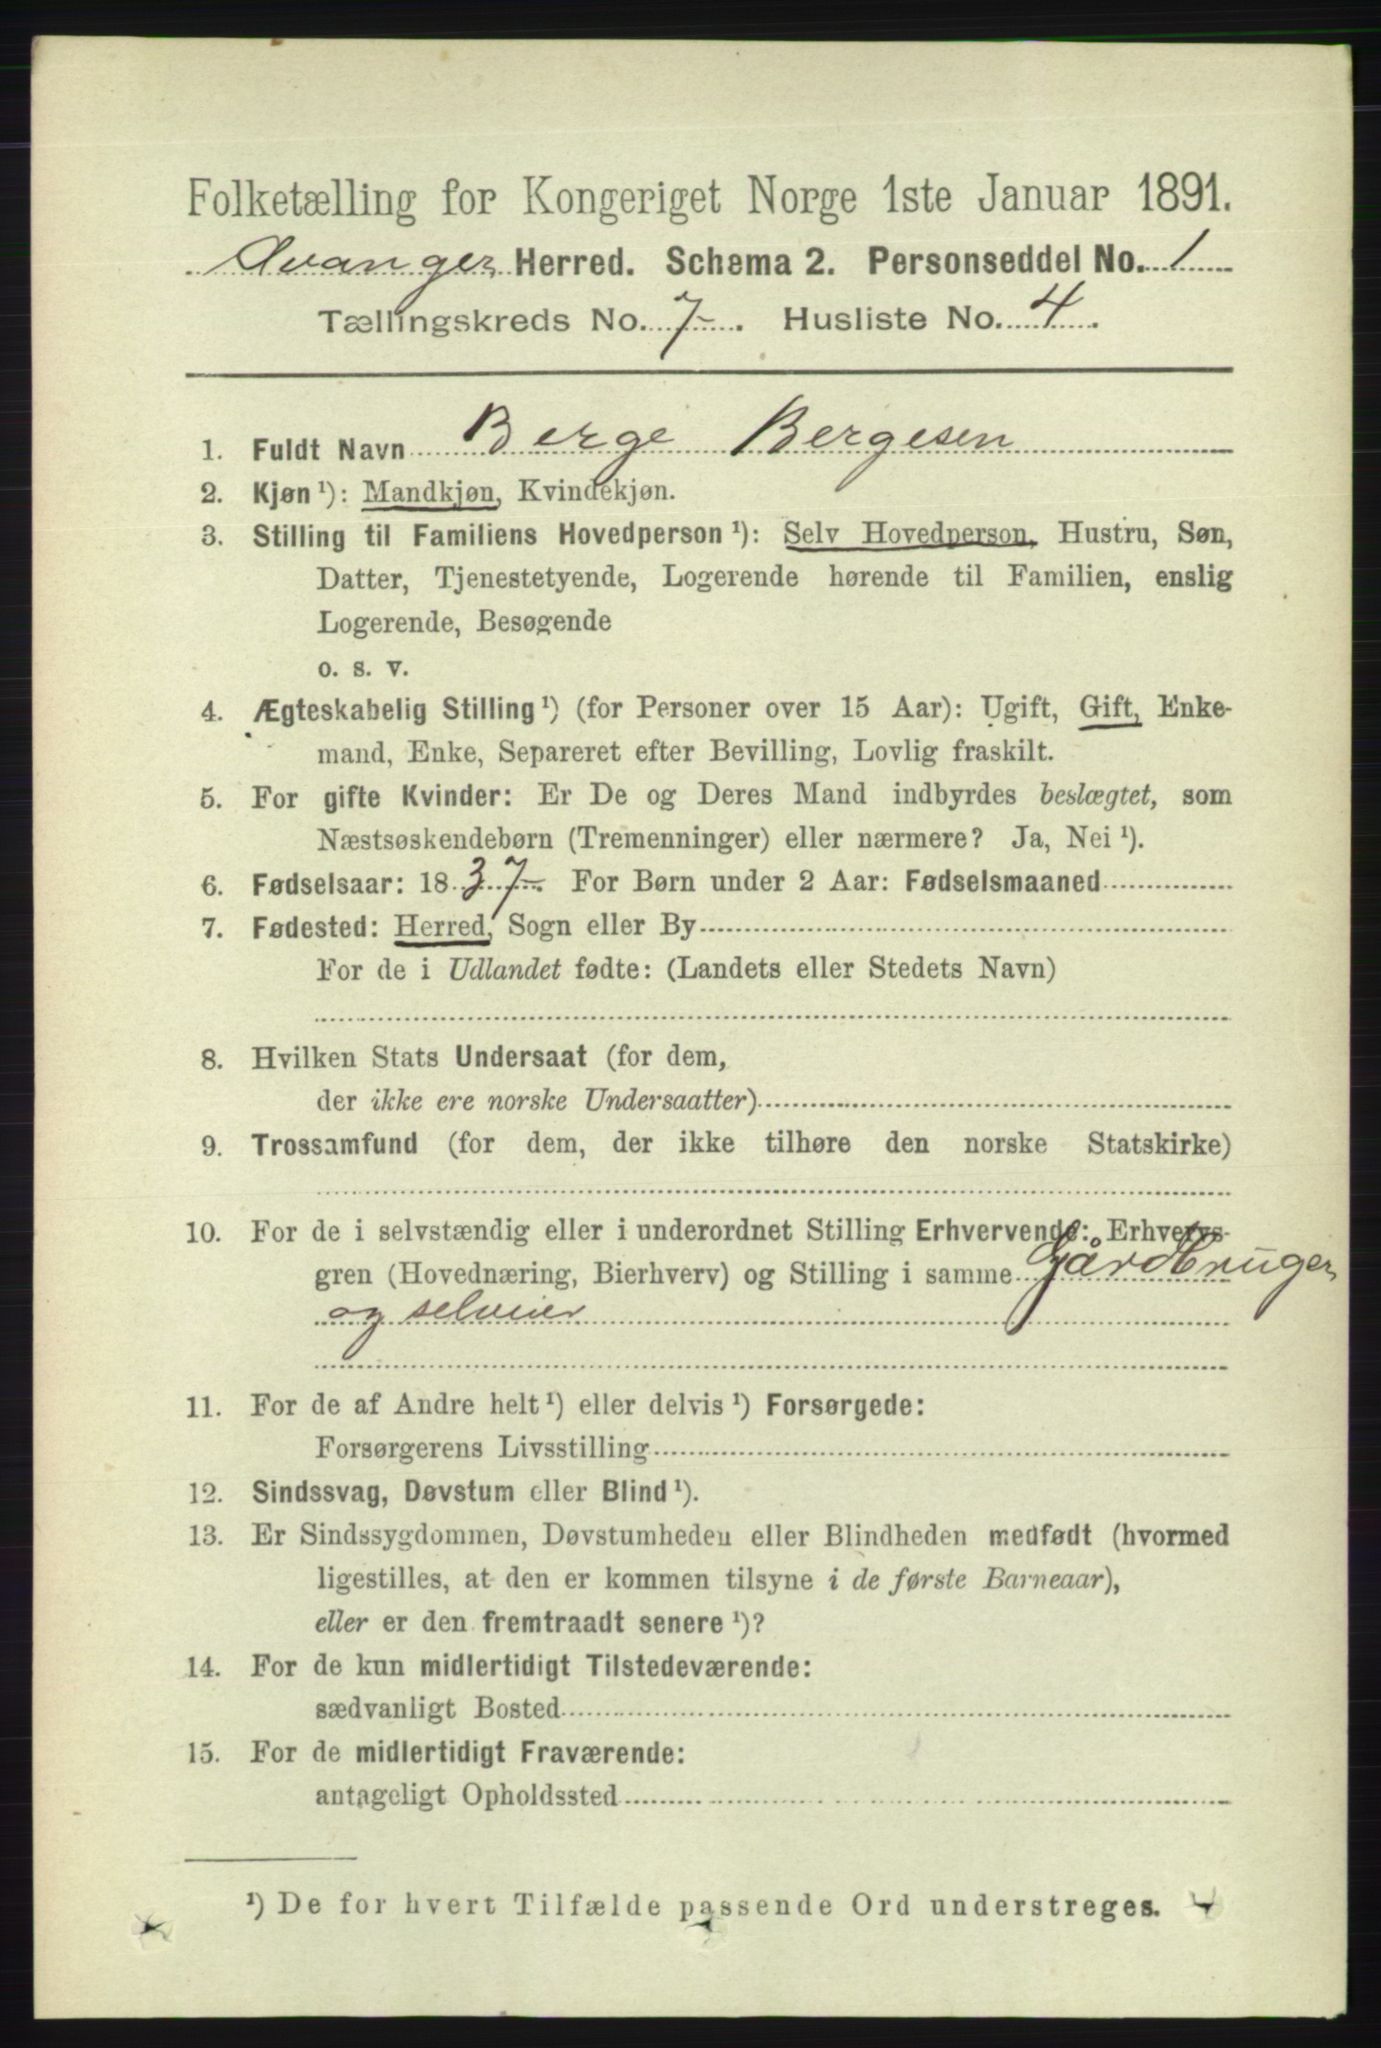 Folketælling for Kongeriget Norge 1ste Januar 1891.
Avanger Herred. Schema 2. Personseddel No. 1
Tællingskreds No. 7. Husliste No. 4.
1. Fuldt Navn Berge Bergesen
2. Kjøn ¹): Mandkjøn, Kvindekjøn.
3. Stilling til Familiens Hovedperson ¹): Selv Hovedperson, Hustru, Søn,
Datter, Tjenestetyende, Logerende hørende til Familien, enslig
Logerende, Besøgende
o. s. v.
4. Ægteskabelig Stilling ¹) (for Personer over 15 Aar): Ugift, Gift, Enke-
mand, Enke, Separeret efter Bevilling, Lovlig fraskilt.
5. For gifte Kvinder: Er De og Deres Mand indbyrdes beslægtet, som
Næstsøskendebørn (Tremenninger) eller nærmere? Ja, Nei ¹).
6. Fødselsaar: 1837. For Børn under 2 Aar: Fødselsmaaned
7. Fødested: Herred, Sogn eller By
For de i Udlandet fødte: (Landets eller Stedets Navn)
8. Hvilken Stats Undersaat (for dem,
der ikke ere norske Undersaatter)
9. Trossamfund (for dem, der ikke tilhøre den norske Statskirke)
10. For de i selvstændig eller i underordnet Stilling Erhvervende: Erhvervs-
gren (Hovednæring, Bierhverv) og Stilling i samme Gårdbruger
og selveier
11. For de af Andre helt ¹) eller delvis ¹) Forsørgede:
Forsørgerens Livsstilling
12. Sindssvag, Døvstum eller Blind ¹).
13. Er Sindssygdommen, Døvstumheden eller Blindheden medfødt (hvormed
ligestilles, at den er kommen tilsyne i de første Barneaar),
eller er den fremtraadt senere ¹)?
14. For de kun midlertidigt Tilstedeværende:
sædvanligt Bosted
15. For de midlertidigt Fraværende:
antageligt Opholdssted
¹) De for hvert Tilfælde passende Ord understreges.